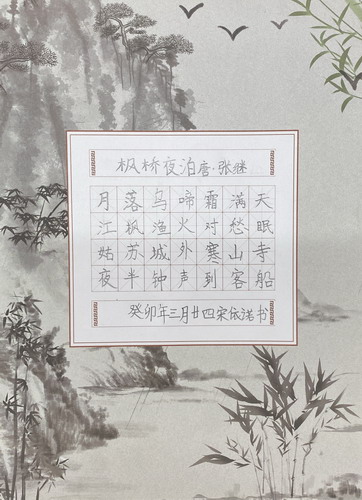 枫桥夜泊唐·张继
月落乌啼霜满天
江枫渔火对愁眠
姑苏城外寒山寺
夜半钟声到客船
癸卯年三月廿四宋依诺书